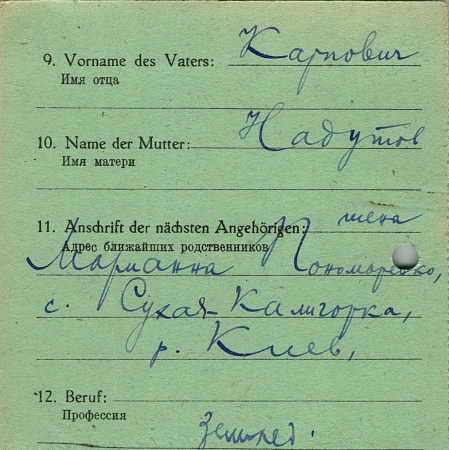 9. Vorname des Vaters: Карпович
Имя отца
10. Name der Mutter: Надутов
Имя матери
11. Anschrift der nächsten Angehörigen: жена
Адрес ближайших родственников
Марианна Пономаренко,
с. Сухая-Калигорка,
р. Киев,
12. Beruf:
Профессия
землед.